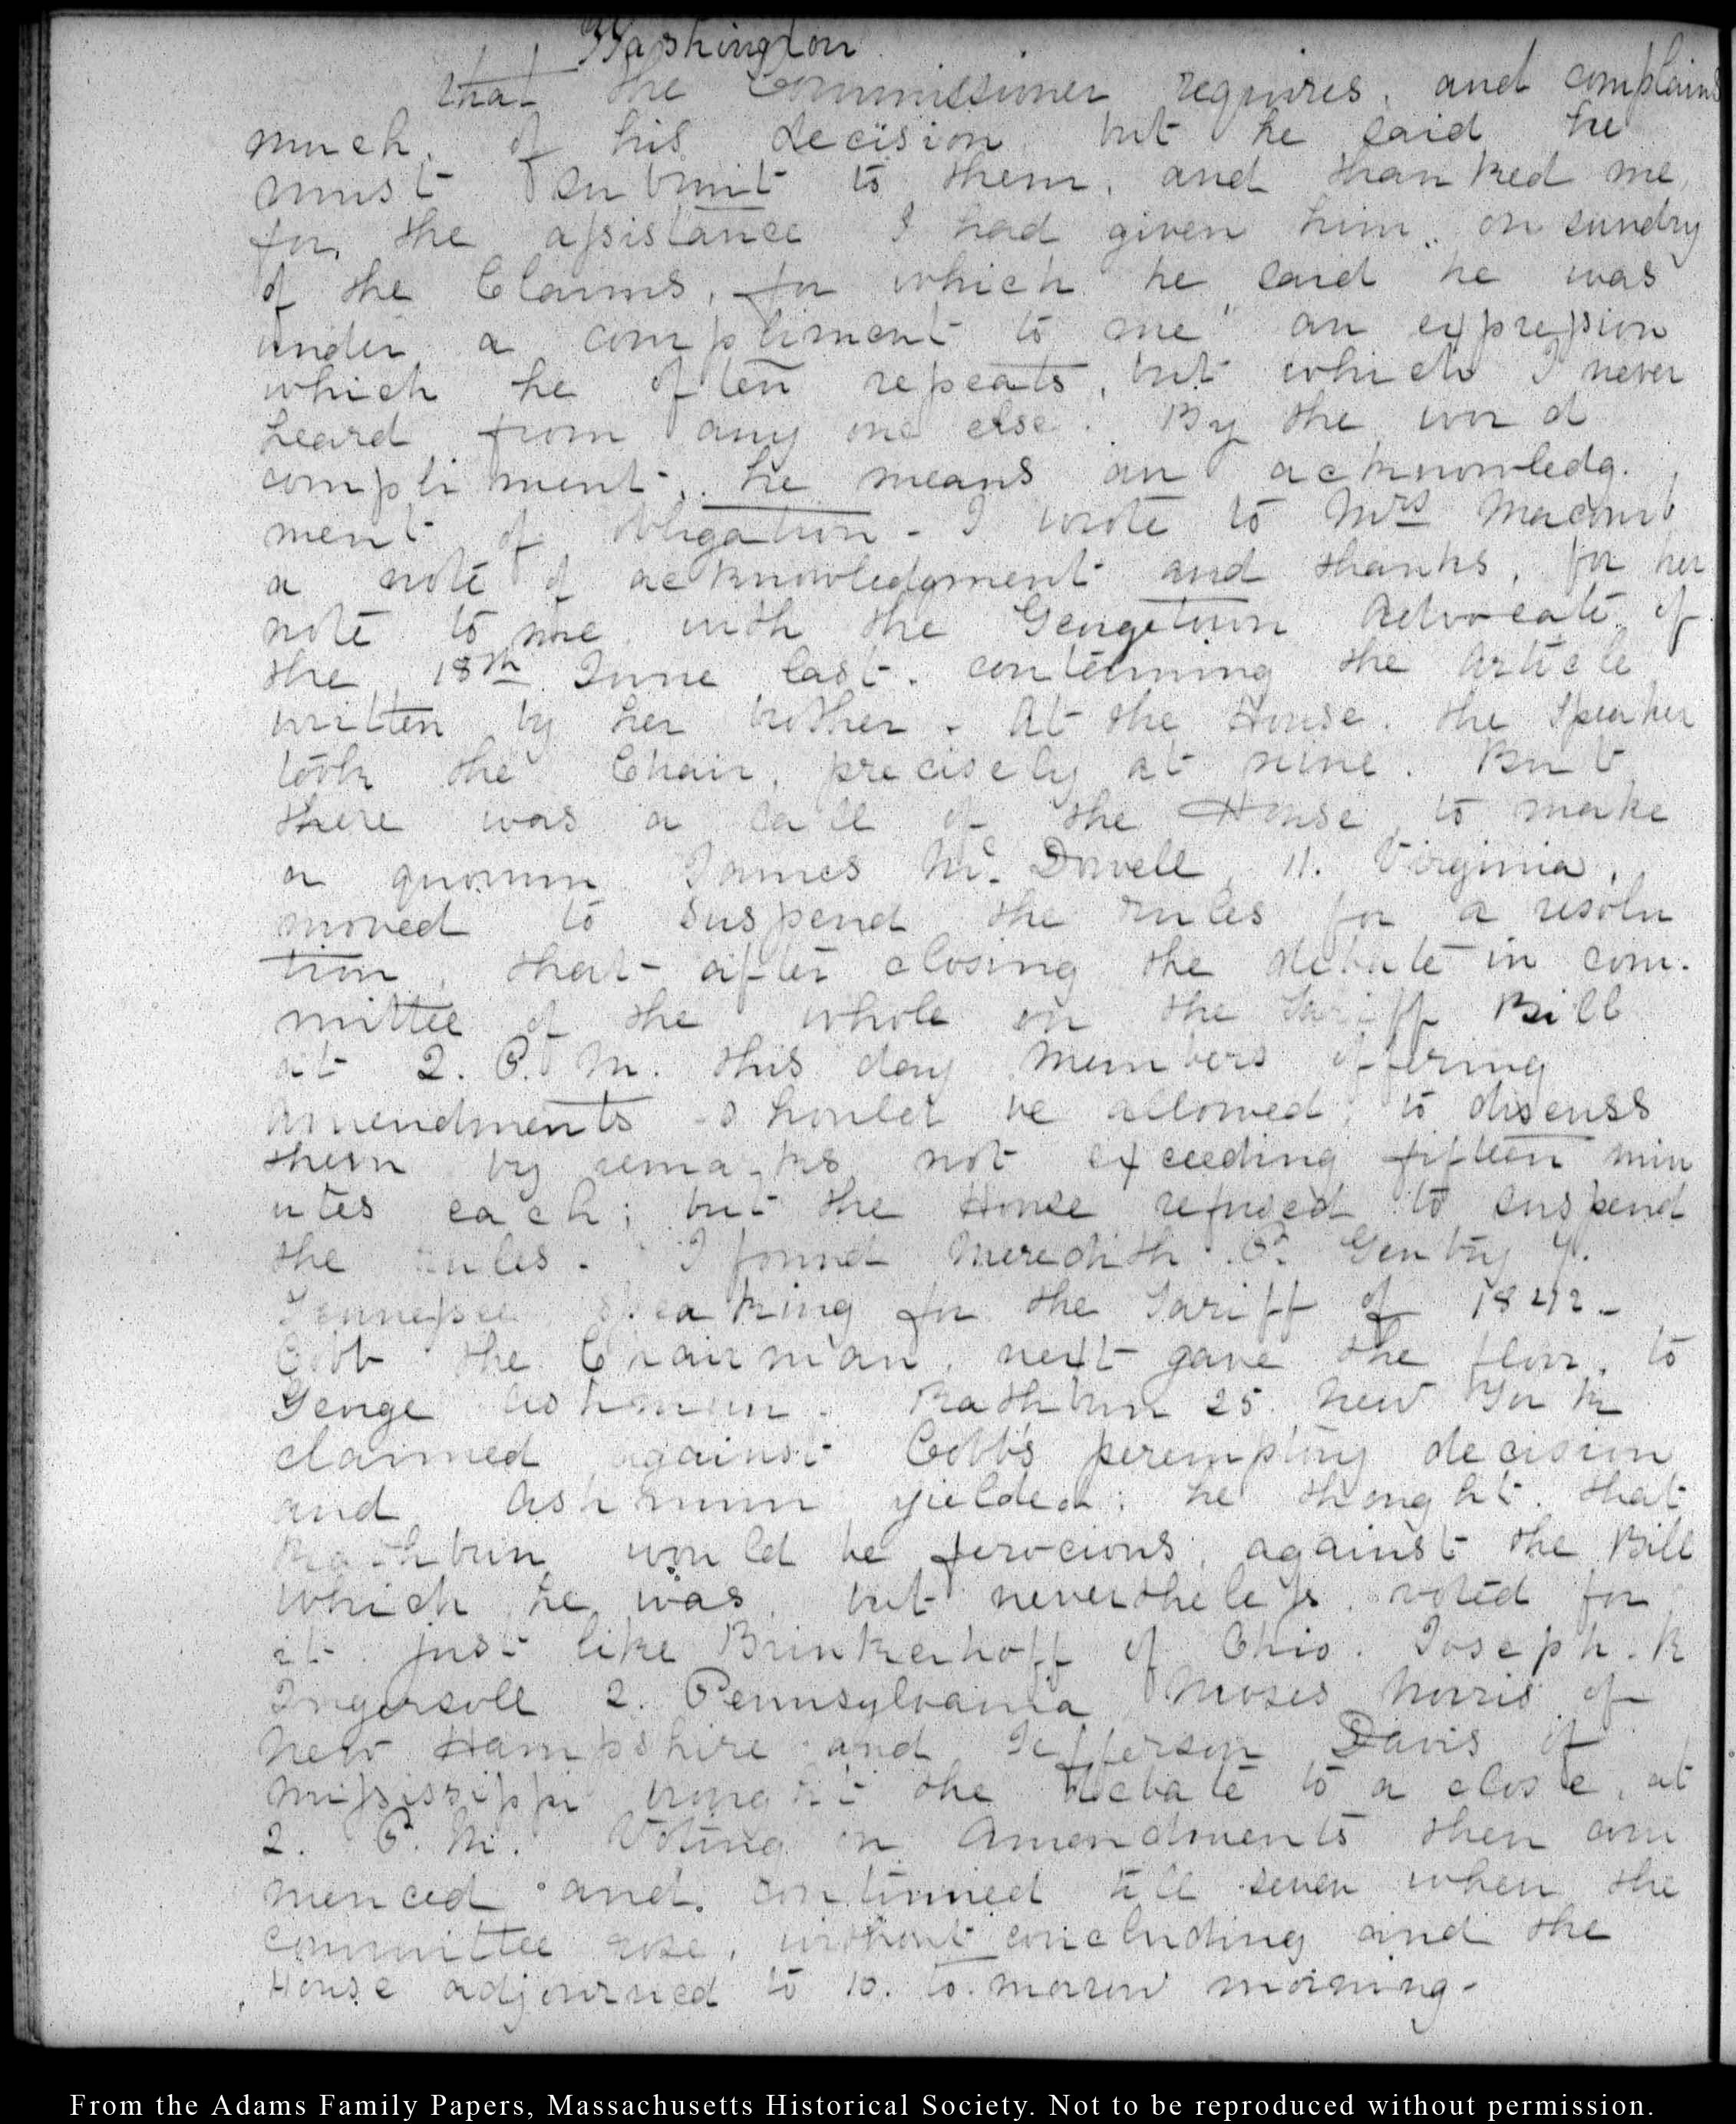 Washington
that the Commissioner requires, and complains
much, of his decision, but he said he
must submit to them, and thanked me,
for, the assistance I had given him, on sundry
of the Claims, for which he said he was
under a compliment to me" an expression
which he often repeats, but which I never
heard from any one else. By the word
compliment, he means an acknowledg.
ment of obligation - I wrote to Mrs Macomb
a note of acknowledgment and thanks, for her
note to me with the Georgetown Advocate of
the 18th June last. containing the Article
written by her brother. At the House. the Speaker
took the Chair, precisely at nine. But
there was a call of the House, to make
a quorum James Mc. Dowell 11. Virginia,
moved to suspend the rules for a resolu
tion, that after closing the debate in com.
mittee of the whole on the Tariff Bill
at 2. P. M. this day members offering
amendments should be allowed, to discuss
them by remarks not exceeding fifteen min
utes each; but the House refused to suspend
the rules. I found Meredith P. Gentry 7.
Tennessee speaking for the Tariff of 1842 -
Cobb the Chairman, next gave the floor, to
George Ashmun. Rathbun 25. New York
claimed against Cobb's peremptory decision
and Ashmun yielded; he thought that
Rathbun would be ferocious, against the Bill
which he was, but nevertheless, voted for
it just like Brinkerhoff of Ohio. Joseph. R
Ingersoll 2. Pennsylvania Moses Norris of
New Hampshire and Jefferson Davis of
Mississippi brought the debate to a close, at
2. P. M. Voting on Amendments then com
menced and continued till seven when the
committee rose, without concluding and the
House adjourned to 10. to. morrow morning -
From the Adams Family Papers, Massachusetts Historical Society. Not to be reproduced without permission.